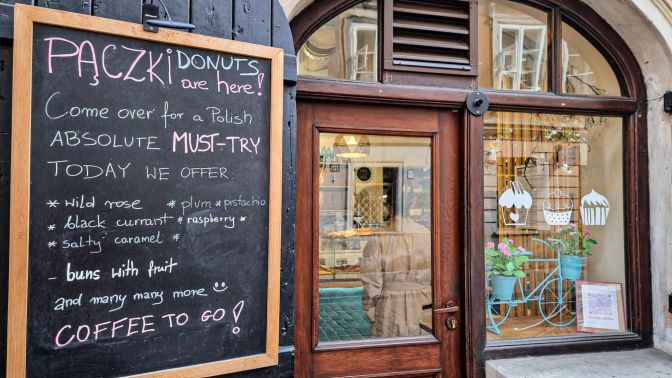 PĄCZKI DONUTS
are here!
Come over for a Polish
ABSOLUTE MUST-TRY
TODAY WE OFFER:
* wild rose * plum * pistachio
* black currant * raspberry *
* salty caramel *
- buns with fruit
and many many more
COFFEE TO GO!